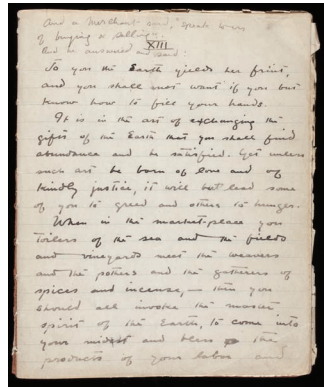 And a merchant said, "Speak to us
of buying & selling."
XIII
And he answered and said:
To you the Earth yields her fruit,
and you shall not want if you but
know how to fill your hands.
It is in the art of exchanging the
gifts of the Earth that you shall find
abundance and be satisfied. Yet unless
such art be born of love and of
kindly justice, it will but lead some
of you to greed and others to hunger.
When in the market-place you
toilers of the sea and the fields
and vineyards meet the weavers
and the potters and the gatherers of
spices and incense, — then you
should all invoke the master
spirit of the Earth, to come into
your midst and bless the
products of your labor and